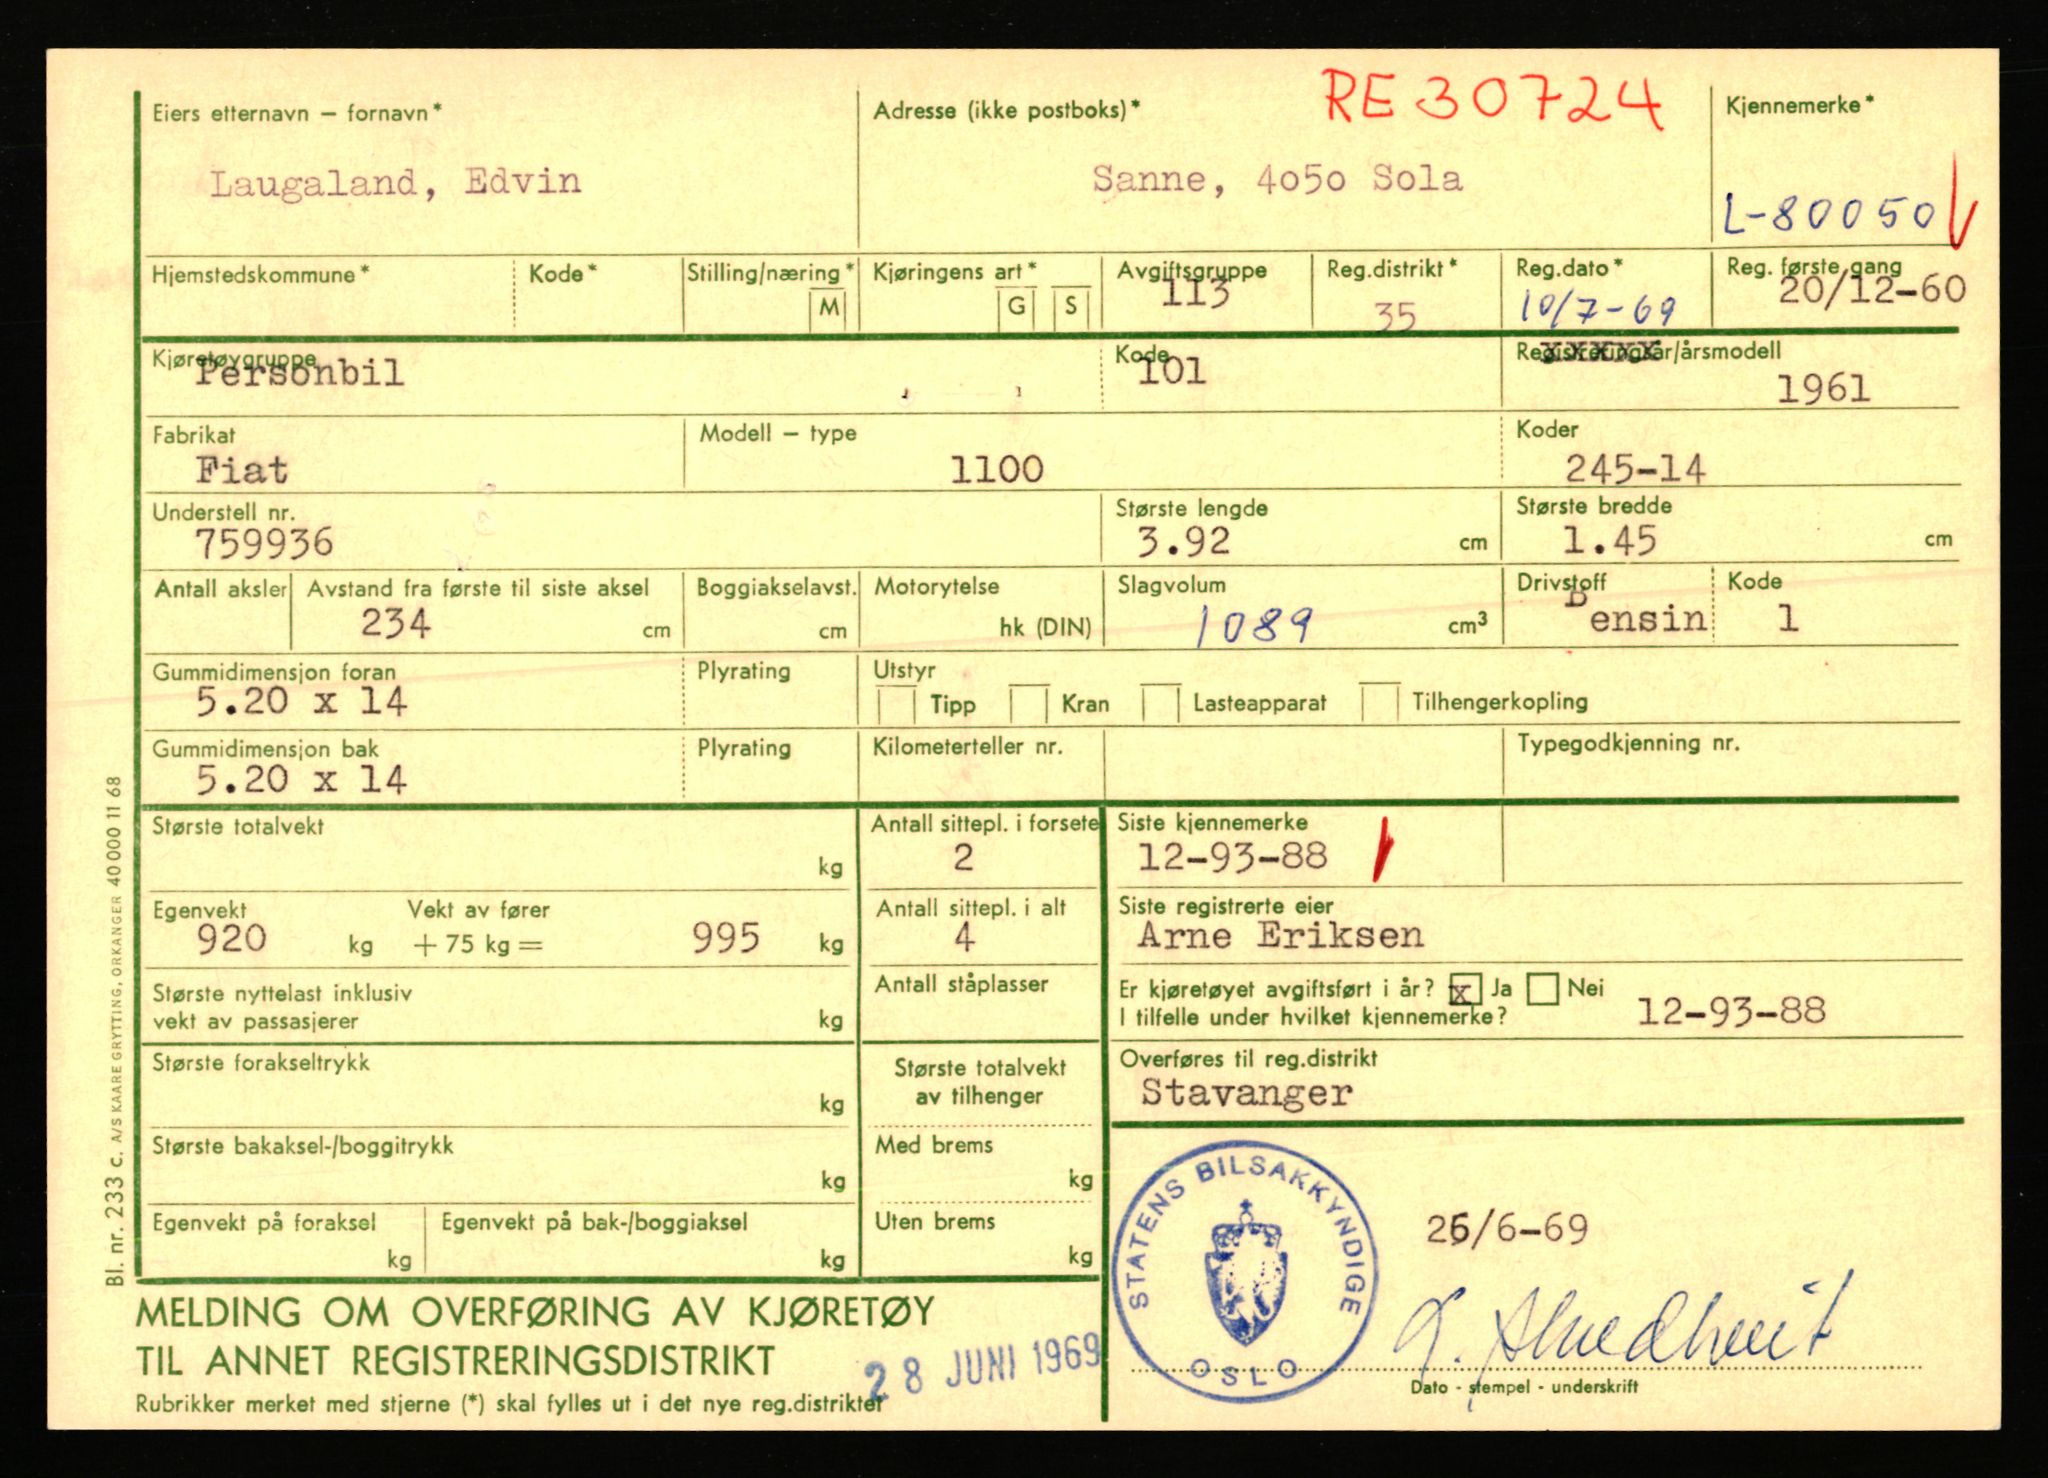 RE 30724
Eiers etternavn – fornavn* Adresse (ikke postboks)* Kjennemerke*
Laugaland, Edvin Sanne, 4050 Sola
L-80050
Hjemstedskommune* Kode* Stilling/næring* Kjøringens art* Avgiftsgruppe Reg.distrikt* Reg.dato* Reg. første gang
M G S 113 35 10/7-69 20/12-60
Kjøretøygruppe Kode Registreringsår/årsmodell
Personbil 101 1961
Fabrikat Modell – type Koder
Fiat 1100 245-14
Understell nr. Største lengde Største bredde
759936 3.92 cm 1.45 cm
Antall aksler Avstand fra første til siste aksel Boggiakselavst. Motorytelse Slagvolum Drivstoff Kode
234 cm cm hk (DIN) 1089 cm³ Bensin 1
Gummidimensjon foran Plyrating Utstyr
5.20 x 14 Tipp Kran Lasteapparat Tilhengerkopling
Gummidimensjon bak Plyrating Kilometerteller nr. Typegodkjenning nr.
5.20 x 14
Største totalvekt Antall sittepl. i forsete Siste kjennemerke
kg 2 12-93-88
Egenvekt Vekt av fører Antall sittepl. i alt Siste registrerte eier
920 kg + 75 kg = 995 kg 4 Arne Eriksen
Største nyttelast inklusiv Antall ståplasser Er kjøretøyet avgiftsført i år? x Ja Nei
vekt av passasjerer kg I tilfelle under hvilket kjennemerke? 12-93-88
Største forakseltrykk Største totalvekt Overføres til reg.distrikt
kg av tilhenger Stavanger
Største bakaksel-/boggitrykk Med brems
kg kg
Egenvekt på foraksel Egenvekt på bak-/boggiaksel Uten brems
kg kg kg
STATENS BILSAKKYNDIGE
OSLO
26/6-69
MELDING OM OVERFØRING AV KJØRETØY
TIL ANNET REGISTRERINGSDISTRIKT
28 JUNI 1969
Dato - stempel - underskrift
Rubrikker merket med stjerne (*) skal fylles ut i det nye reg.distriktet
Bl. nr. 233 c. A/S KAARE GRYTTING, ORKANGER 40 000 11 68